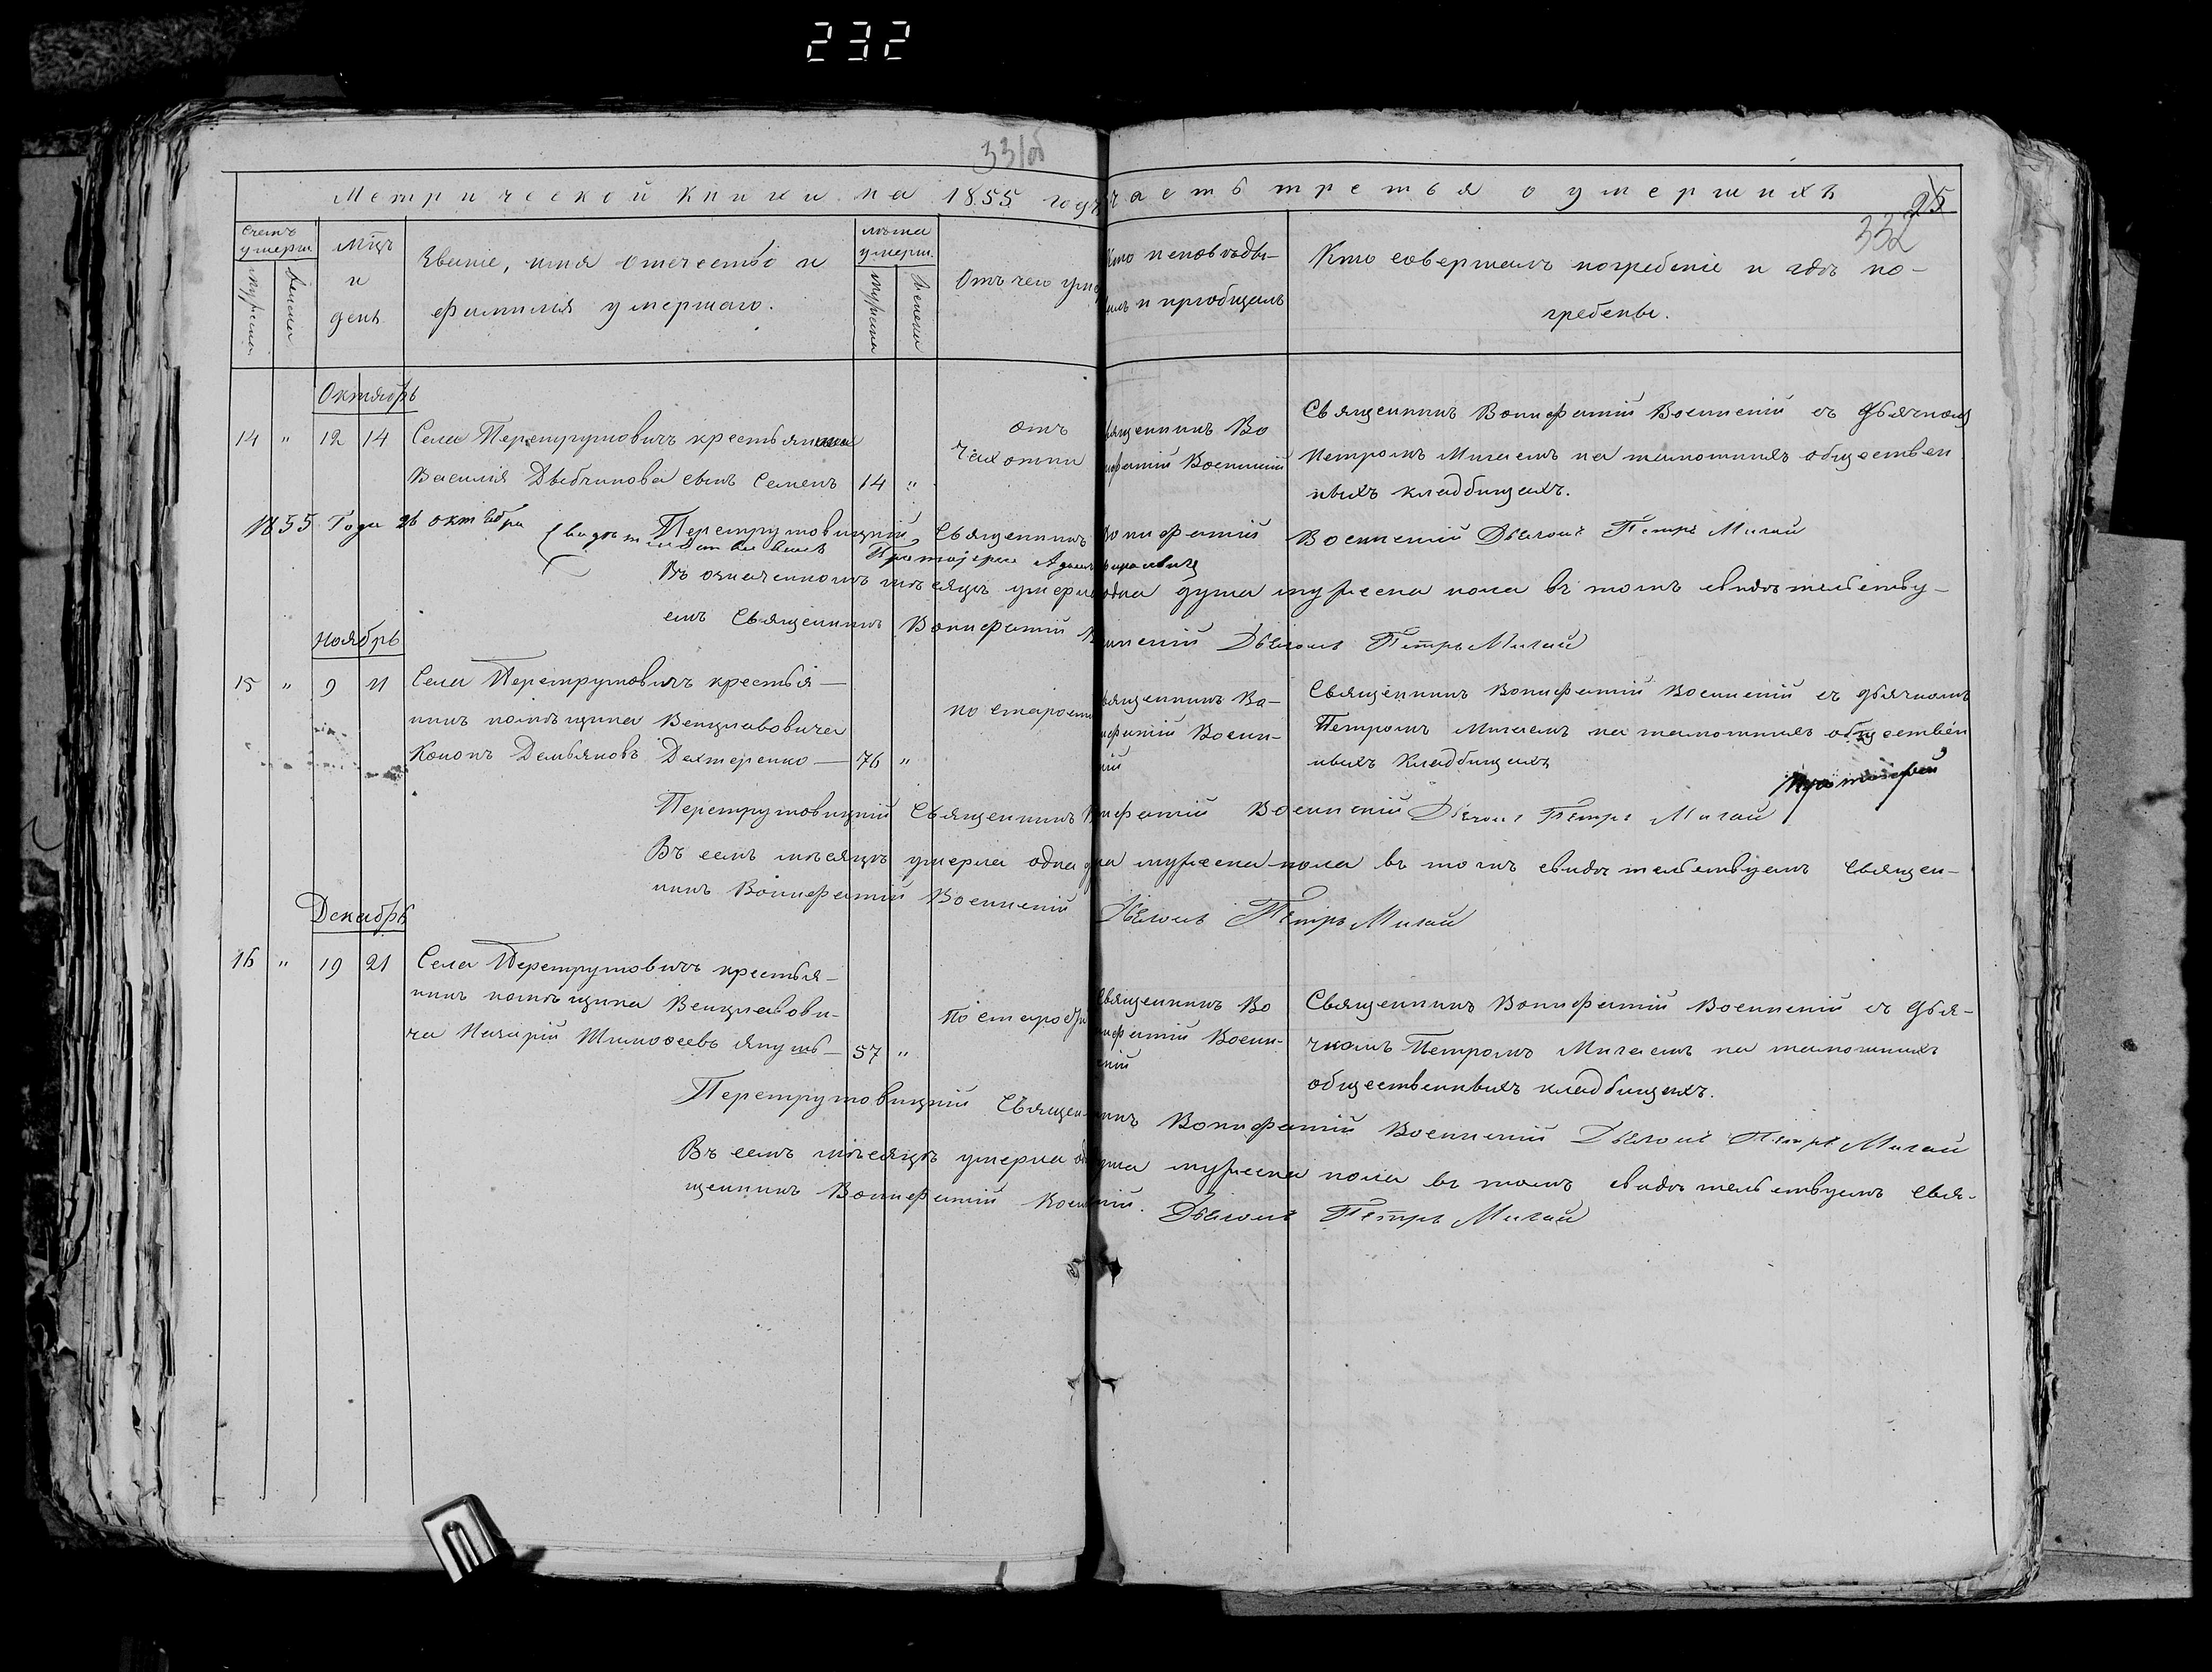 232
331об
Метрической книги на 1855 годъ часть третья о умершихъ
25
332
Счетъ умерш.
мужеска
женска
Мцъ и день
Званіе, имя отечество и фамилія умершаго.
лѣта умерш.
мужеска
женска
Отъ чего умеръ
Кто исповѣды-
валъ и пріобщалъ
Кто совершалъ погребеніе и гдѣ по-
гребены.
Октябрь
14 " 12 14 Села Перетрутовичъ крестьянина
Василія сынъ Семенъ 14 "
отъ
чахотки
Священникъ Во
нифатій Воеинскій
Священникъ Вонифатій Воеинскій съ дьячкомъ
Петромъ Мигаемъ на тамошнихъ обществен
ныхъ кладбищахъ.
1855 Года 26 октября
Перетрутовицкій Священникъ Вонифатій Воеинскій Дьячокъ Петръ Мигай
Протоіерей
Въ означенномъ мѣсяцѣ умерла одна душа мужеска пола въ томъ свидѣтельству-
емъ Священникъ Вонифатій Воеинскій Дьячокъ Петръ Мигай
Ноябрь
15 " 9 11 Села Перетрутовичъ крестья-
нинъ помѣщика Венцлавовича
Кононъ Демьяновъ Дехтеренко — 76 "
по старости
Священникъ Во-
нифатій Воеин-
скій
Священникъ Вонифатій Воеинскій съ дьячкомъ
Петромъ Мигаемъ на тамошнихъ обществен
ныхъ кладбищахъ
Протоіерей
Перетрутовицкій Священникъ Вонифатій Воеинскій Дьячокъ Петръ Мигай
Въ семъ мѣсяцѣ умерла одна душа мужеска пола въ томъ свидѣтельствуемъ Священ-
никъ Вонифатій Воеинскій Дьячокъ Петръ Мигай
Декабрь
16 " 19 21 Села Перетрутовичъ крестья-
нинъ помѣщика Венцлавови-
ча Назарій Тимоѳеевъ — 57 "
по старости
Священникъ Во
нифатій Воеин-
скій
Священникъ Вонифатій Воеинскій съ дья-
чкомъ Петромъ Мигаемъ на тамошнихъ
общественныхъ кладбищахъ.
Перетрутовицкій Священникъ Вонифатій Воеинскій Дьячокъ Петръ Мигай
Въ семъ мѣсяцѣ умерла одна душа мужеска пола въ томъ свидѣтельствуемъ Свя-
щенникъ Вонифатій Воеинскій. Дьячокъ Петръ Мигай